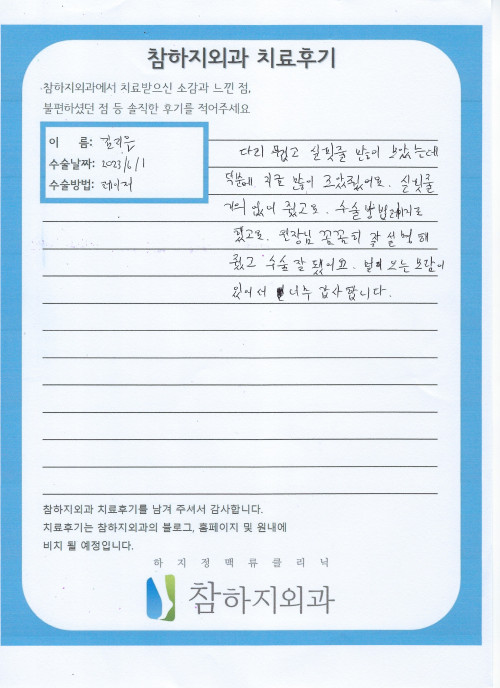 참하지외과 치료후기
참하지외과에서 치료받으신 소감과 느낀 점,
불편하셨던 점 등 솔직한 후기를 적어주세요
이 름: 김지은
수술날짜: 2023/6/1
수술방법: 레이저
다리 무겁고 실핏줄 많이 보였는데
덕분에 지금 많이 좋아졌어요. 실핏줄
거의 없어 졌고요. 수술방법 레이저로
했고요. 원장님 꼼꼼히 잘 설명 해
줬고 수술 잘 됐어요. 보람이
있어서 너무 감사합니다.
참하지외과 치료후기를 남겨 주셔서 감사합니다.
치료후기는 참하지외과의 블로그, 홈페이지 및 원내에
비치 될 예정입니다.
하지정맥류클리닉
참하지외과